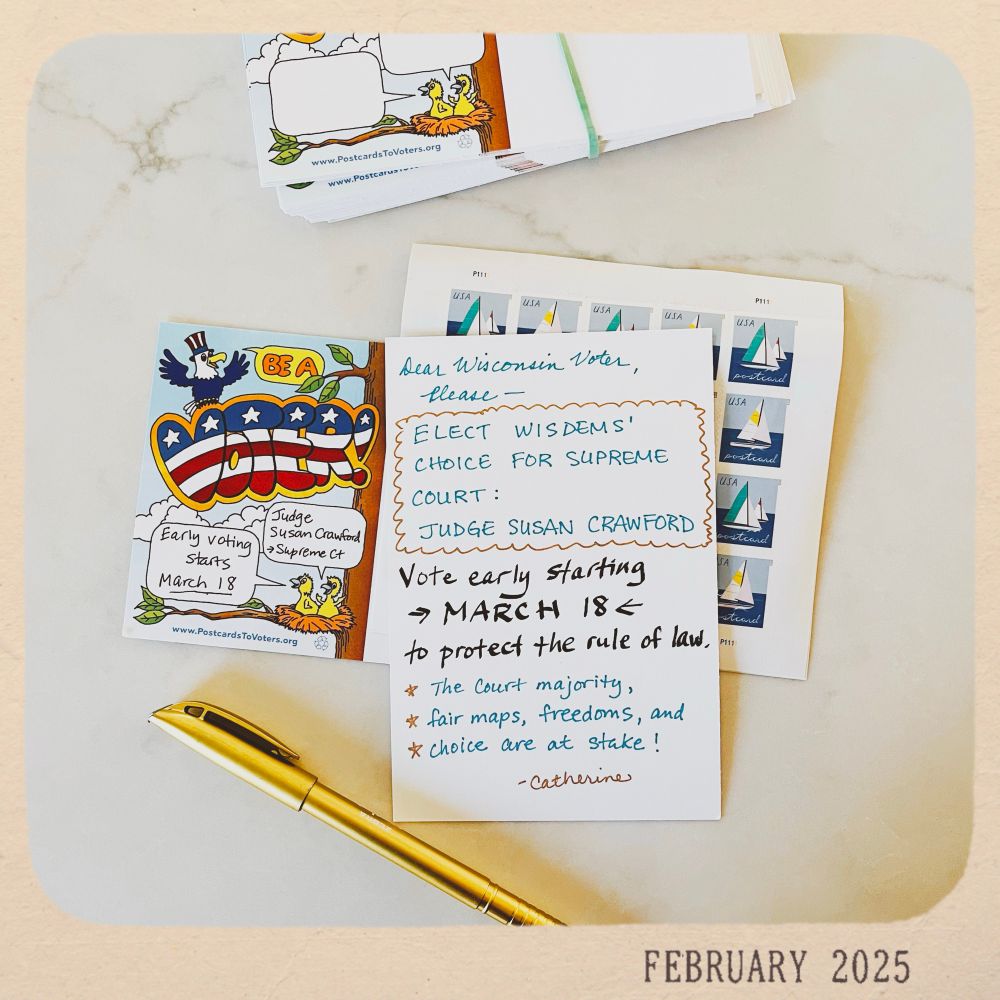 www.PostcardsToVoters.org
www.PostcardsToVo
P111
P111
USA
USA
USA
USA
USA
postcard
USA
postcard
USA
postcard
postcard
P111
BE A
VOTER!
Early voting
starts
March 18
Judge
Susan Crawford
→ Supreme Ct
www.PostcardsToVoters.org
Dear Wisconsin Voter,
Please —
ELECT WISDEMS'
CHOICE FOR SUPREME
COURT:
JUDGE SUSAN CRAWFORD
Vote early starting
→ MARCH 18 ←
to protect the rule of law.
* The Court majority,
* fair maps, freedoms, and
* choice are at stake!
-Catherine
FEBRUARY 2025